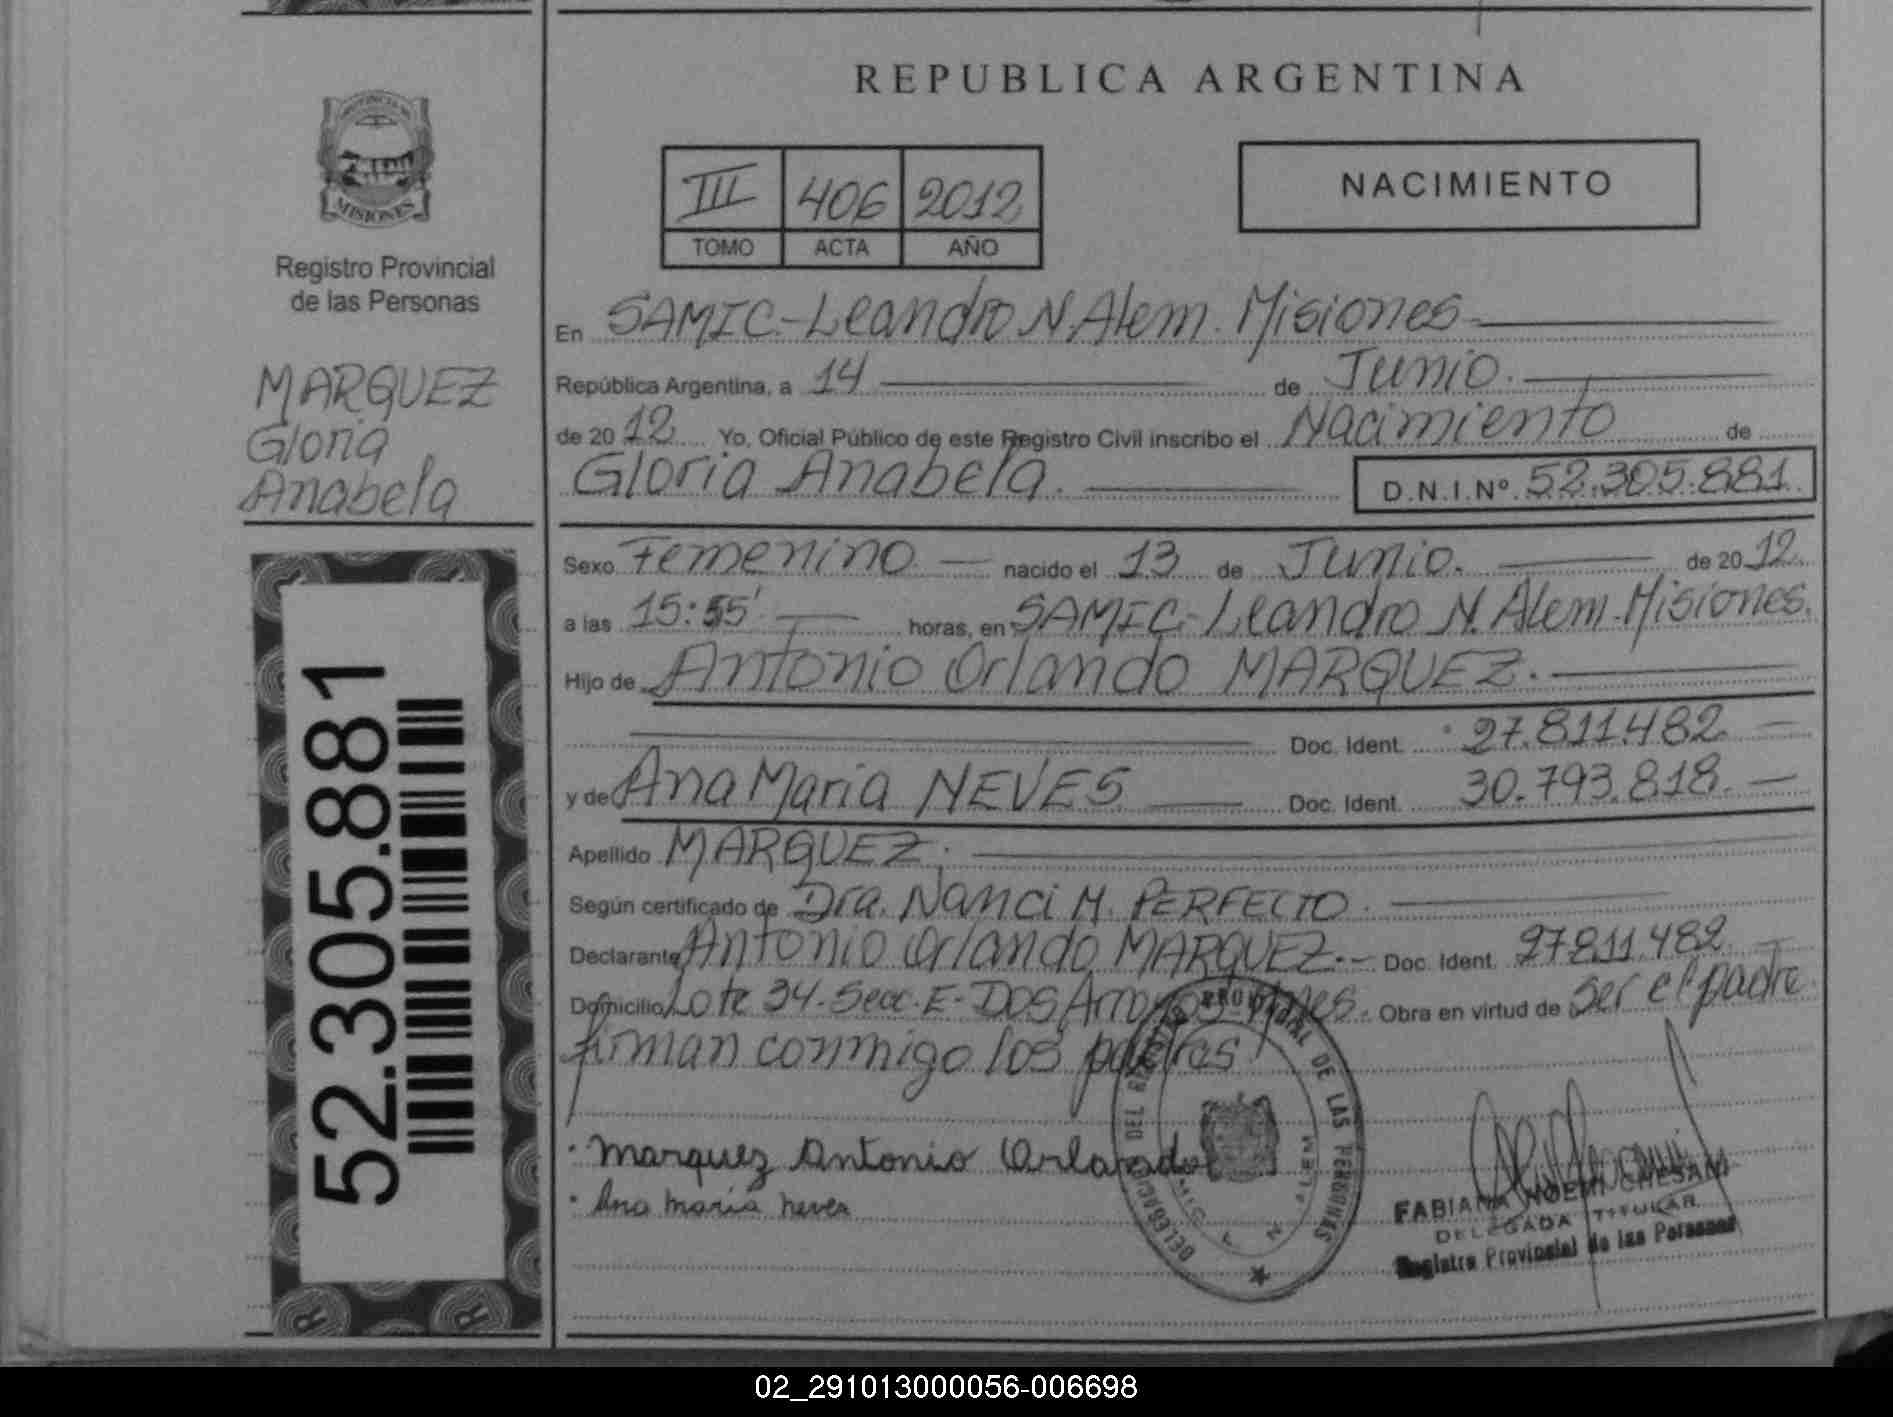 REPUBLICA ARGENTINA
PROVINCIA DE
MISIONES
Registro Provincial
de las Personas
MARQUEZ
Gloria
Anabela
52.305.881
III 406 2012
TOMO ACTA AÑO
NACIMIENTO
En SAMIC-Leandro N. Alem. Misiones
República Argentina, a 14 de Junio.
de 2012 Yo, Oficial Público de este Registro Civil inscribo el Nacimiento de
Gloria Anabela. D.N.I.Nº 52.305.881
Sexo Femenino nacido el 13 de Junio. de 2012.
a las 15:55' horas, en SAMIC-Leandro N. Alem.Misiones.
Hijo de Antonio Orlando MARQUEZ.
Doc. Ident. 27.811.482
y de Ana Maria NEVES Doc. Ident. 30.793.818.
Apellido MARQUEZ.
Según certificado de Dra. Nanci M. PERFECTO.
Declarante Antonio Orlando MARQUEZ.- Doc. Ident. 27811.482
Domicilio Lote 34-Secc. E-Dos Arroyos-Mnes. Obra en virtud de ser el padre
firman conmigo los padres
Marquez Antonio Orlando
Ana maria neves
DELEGACION DEL REGISTRO PROVINCIAL DE LAS PERSONAS
FABIANA NOEMI CHESANI
DELEGADA TITULAR
Registro Provincial de las Personas
02_291013000056-006698